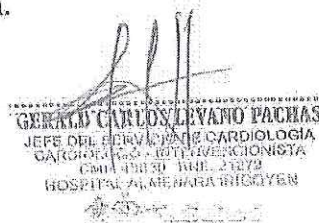 GERALD CARLOS LEVANO PACHAS
JEFE DEL SERVICIO DE CARDIOLOGIA
CARDIOLOGO - INTERVENCIONISTA
CMP RNE
HOSPITAL ALMENARA IRIGOYEN